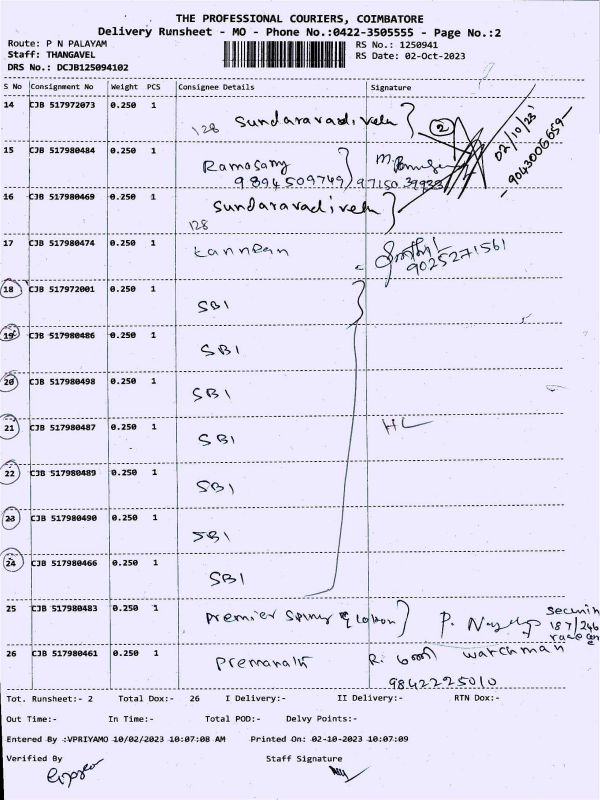 THE PROFESSIONAL COURIERS, COIMBATORE
Delivery Runsheet - MO - Phone No.:0422-3505555 - Page No.:2
Route: P N PALAYAM
RS No.: 1250941
Staff: THANGAVEL
RS Date: 02-Oct-2023
DRS No.: DCJB125094102
S No Consignment No Weight PCS Consignee Details Signature
14 CJB 517972073 0.250 1
128 Sundaravadivelu
2
02/10/23
9043006659
15 CJB 517980484 0.250 1
Ramasamy
9894509749
9715039933
16 CJB 517980469 0.250 1
Sundaravadivelu
128
17 CJB 517980474 0.250 1
Kannan
9025271561
18 CJB 517972001 0.250 1
SBI
19 CJB 517980486 0.250 1
SBI
20 CJB 517980498 0.250 1
SBI
21 CJB 517980487 0.250 1
HL
SBI
22 CJB 517980489 0.250 1
SBI
23 CJB 517980490 0.250 1
SBI
24 CJB 517980466 0.250 1
SBI
25 CJB 517980483 0.250 1
Premier
P.
187/246
26 CJB 517980461 0.250 1
Premanath
R. மணி watchman
9842225010
Tot. Runsheet:- 2 Total Dox:- 26 I Delivery:- II Delivery:- RTN Dox:-
Out Time:- In Time:- Total POD:- Delvy Points:-
Entered By :VPRIYAMO 10/02/2023 10:07:08 AM Printed On: 02-10-2023 10:07:09
Verified By Staff Signature